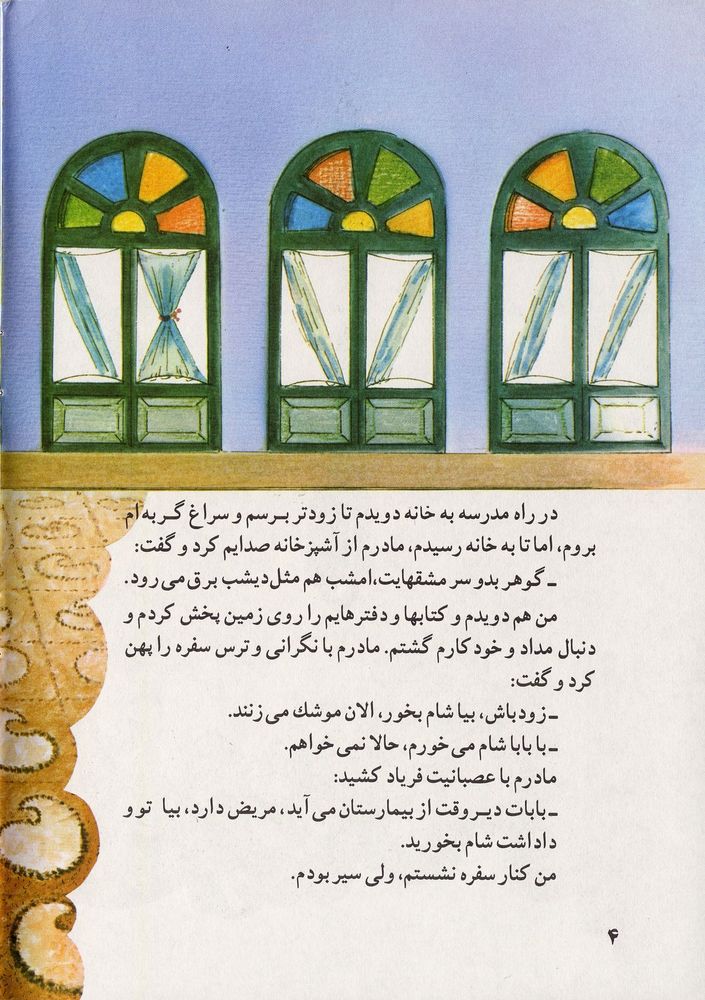 در راه مدرسه به خانه دویدم تا زودتر بـرسم و سراغ گـربه‌ام
بروم، اما تا به خانه رسیدم، مادرم از آشپزخانه صدایم کرد و گفت:
ـ گوهر بدو سر مشقهایت،امشب هم مثل دیشب برق می‌رود.
من هم دویدم و کتابها و دفترهایم را روی زمین پخش کردم و
دنبال مداد و خودکارم گشتم. مادرم با نگرانی و ترس سفره را پهن
کرد و گفت:
ـ زودباش، بیا شام بخور، الان موشك می‌زنند.
ـ با بابا شام می‌خورم، حالا نمی‌خواهم.
مادرم با عصبانیت فریاد کشید:
ـ بابات دیـروقت از بیمارستان می‌آید، مریض دارد، بیا تو و
داداشت شام بخورید.
من کنار سفره نشستم، ولی سیر بودم.
۴